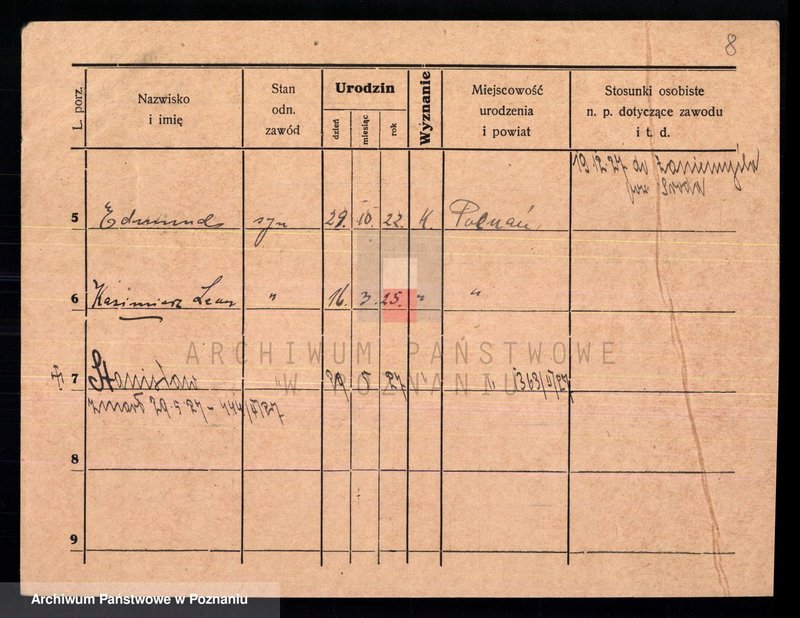 8
L. porz.
Nazwisko
i imię
Stan
odn.
zawód
Urodzin
dzień
miesiąc
rok
Wyznanie
Miejscowość
urodzenia
i powiat
Stosunki osobiste
n. p. dotyczące zawodu
i t. d.
19.12.27 do Zaniemyśla
pow Środa
5 Edmund syn 29. 10. 22. K. Poznań
6 Kazimierz Leon " 16. 3. 25. " "
ARCHIWUM PAŃSTWOWE
W POZNANIU
7 Stanisław " 29 5 27 " "
zmarł 29.5.27 - 144/V/27
8
9
Archiwum Państwowe w Poznaniu